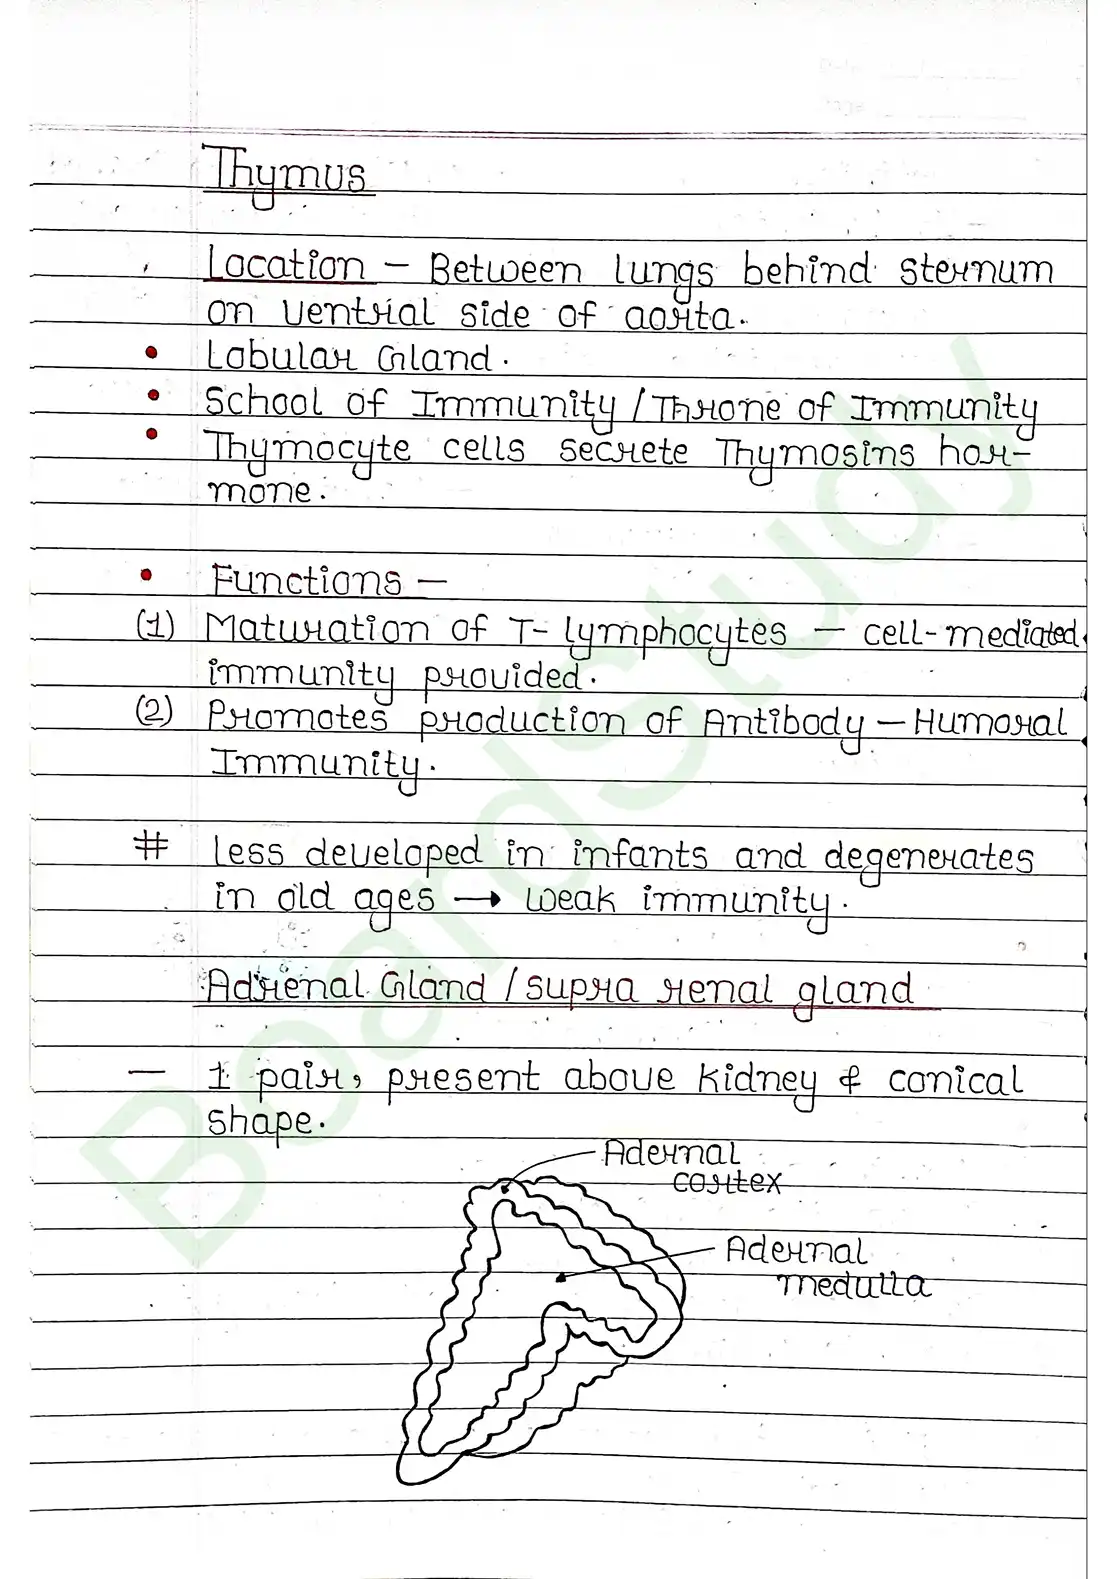 Thymus
Location - Between lungs behind sternum
on ventrial side of aorta.
• Lobular Gland.
• School of Immunity / Throne of Immunity
• Thymocyte cells secrete Thymosins hor-
mone.
• Functions -
(1) Maturation of T- lymphocytes - cell-mediated
immunity provided.
(2) Promotes production of Antibody - Humoral
Immunity.
# less developed in infants and degenerates
in old ages → weak immunity.
Adrenal Gland / supra renal gland
- 1 pair, present above kidney & conical
shape.
Adernal
cortex
Adernal
medulla
BoardStudy